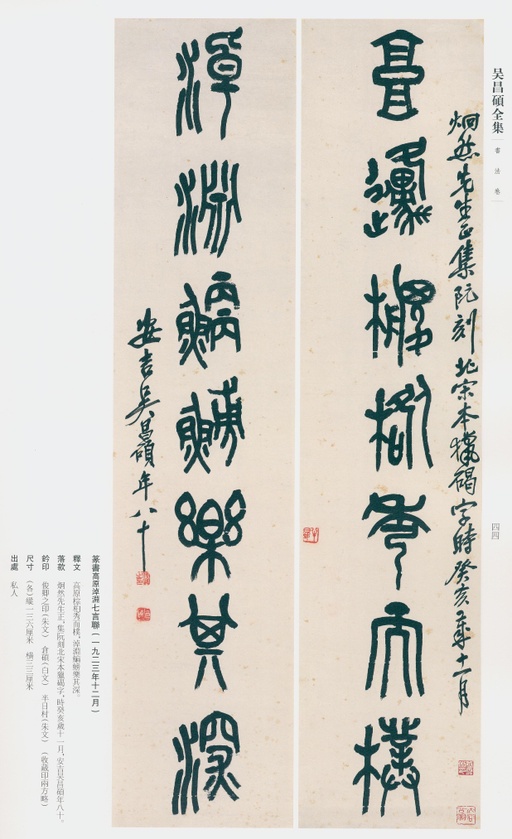 吴昌碩全集
書法卷
炯然先生正集阮刻北宋本獵碣字時癸亥歲十一月
高原椶柏秀而樸
四四
淖淵鯿鯆樂其深
安吉吴昌碩年八十
篆書高原淖淵七言聯(一九二三年十二月)
釋文 高原棕柏秀而樸,淖淵鯿鯆樂其深。
落款 炯然先生正,集阮刻北宋本獵碣字,時癸亥歲十一月,安吉吴昌碩年八十。
鈐印 俊卿之印(朱文) 倉碩(白文) 半日村(朱文) (收藏印兩方略)
尺寸 (各)縱一三六厘米 橫三三厘米
出處 私人